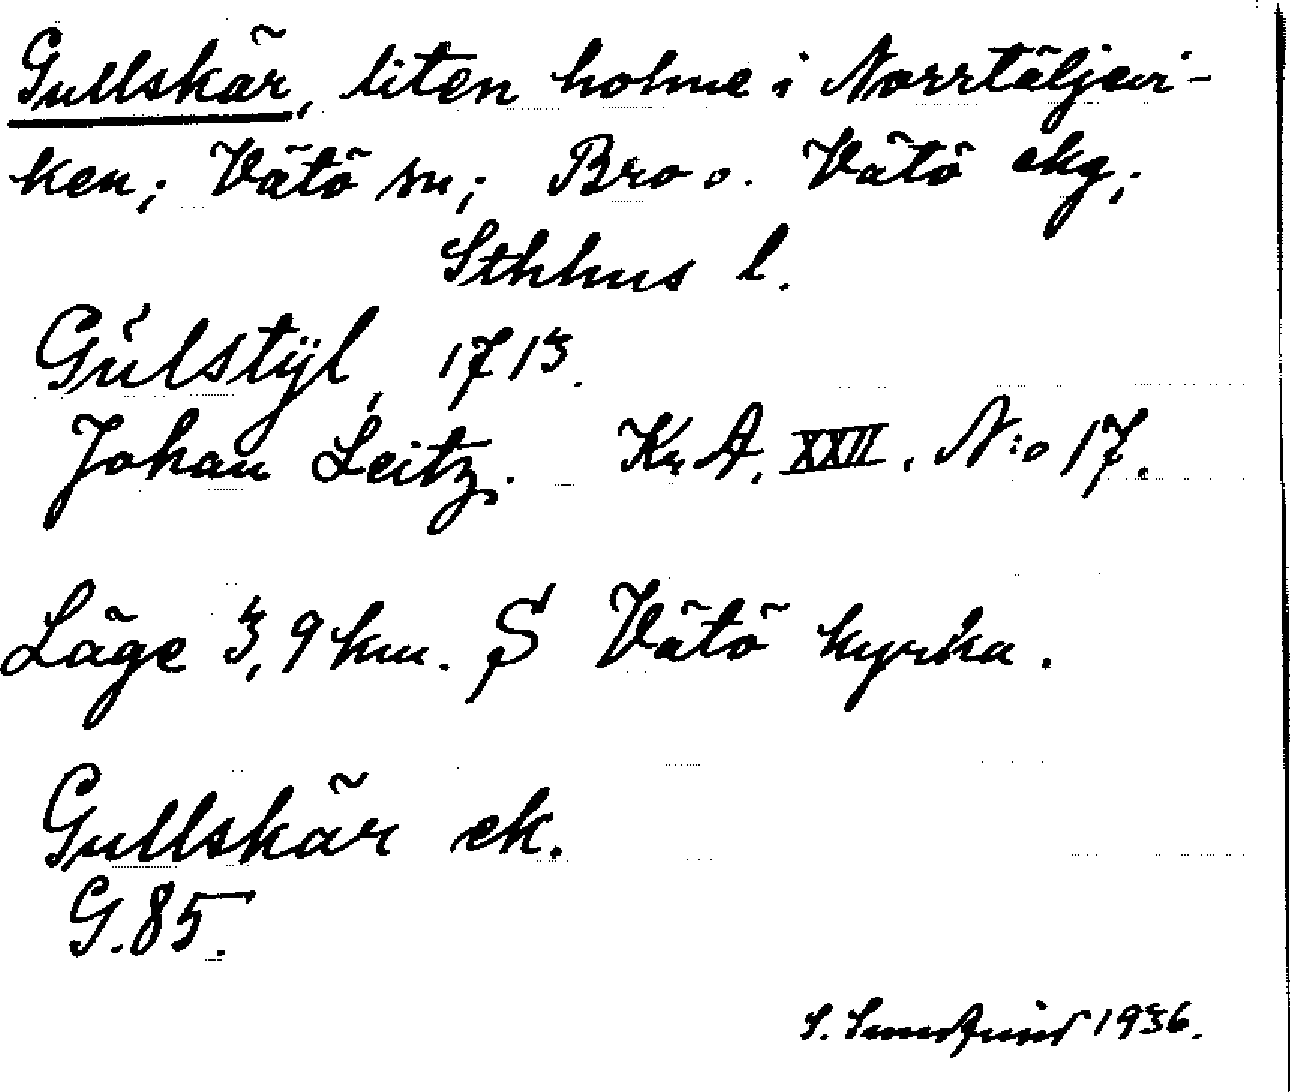 Gullskär, liten holme i Norrtäljevi-
ken; Vätö sn; Bro o. Vätö skg;
Sthlms l.
Gulstÿl, 1713.
Johan Leitz. Kr A. XXII. N:o 17.
Läge 3,9 km. S Vätö kyrka.
Gullskär ek.
G. 85.
S. 1936.